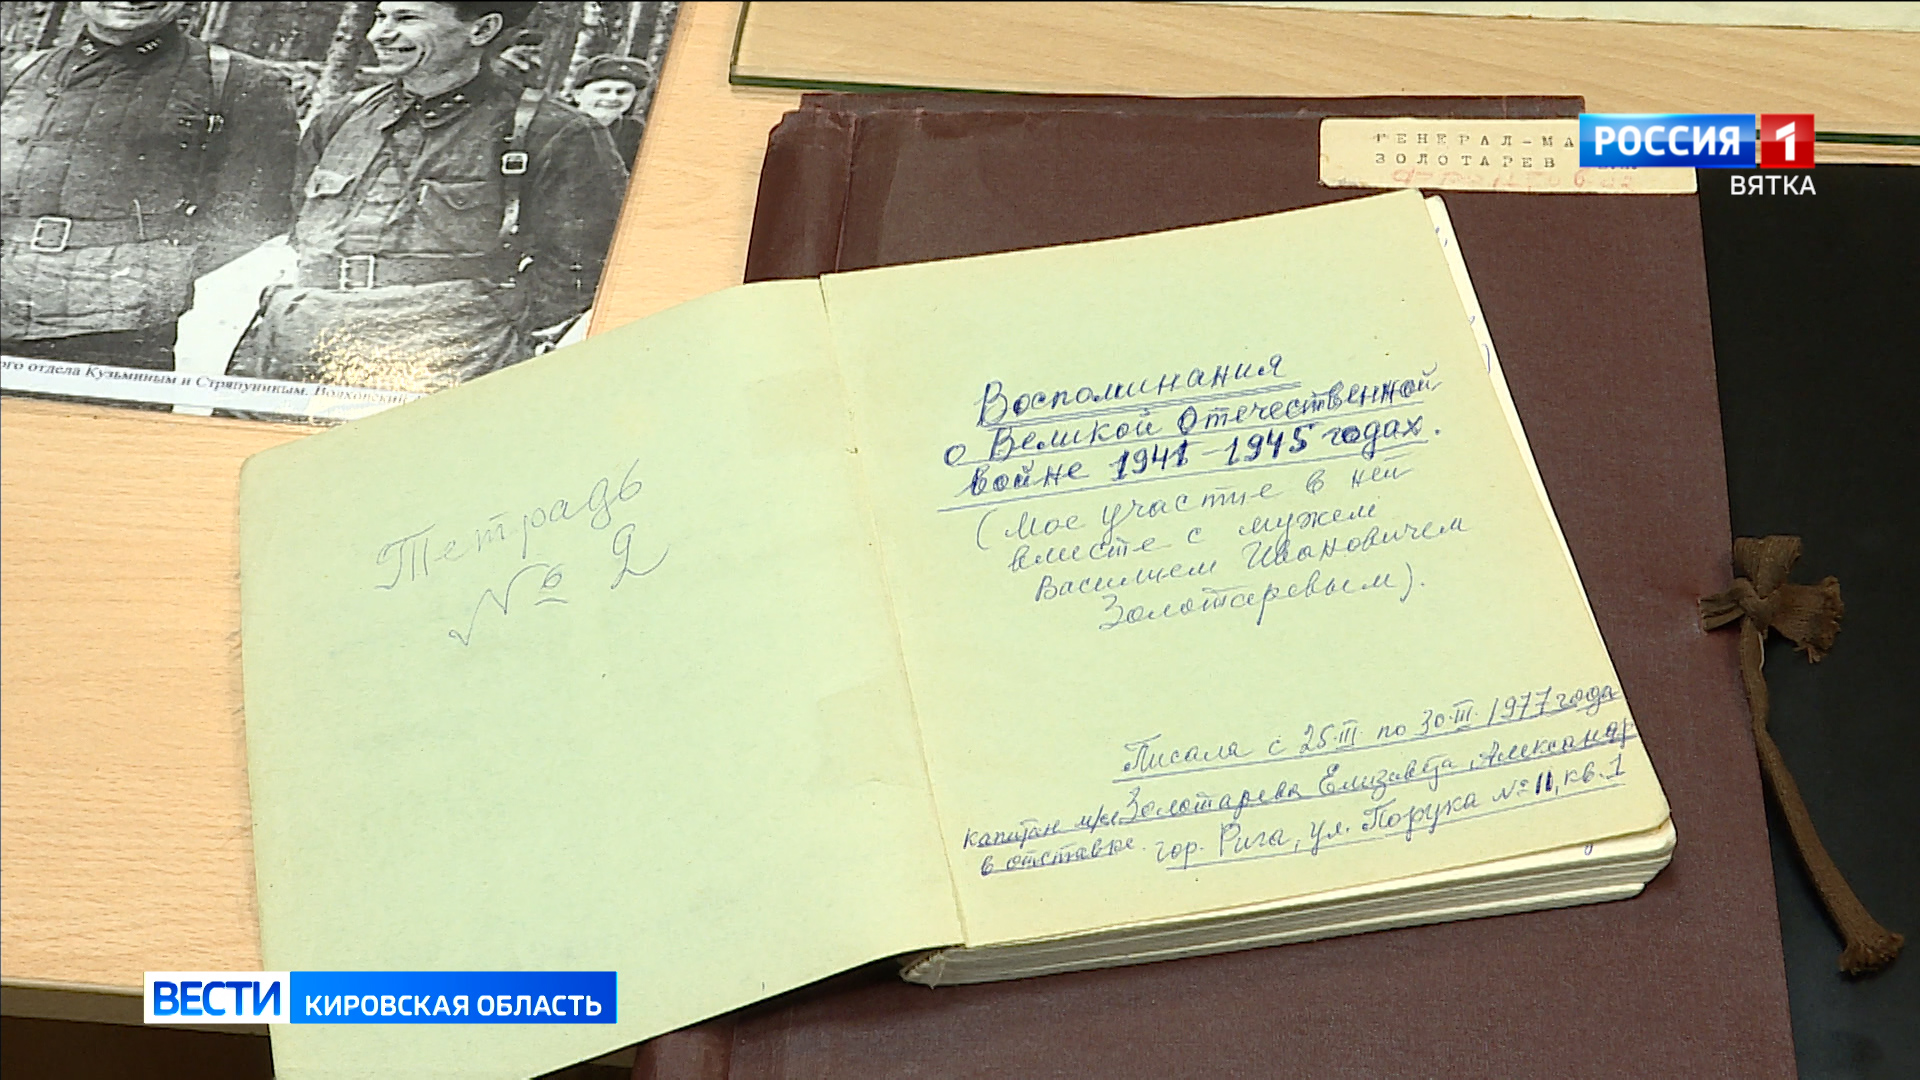 ого отдела Кузьминым и Стряпуниным. Волховский
ГЕНЕРАЛ-МА
ЗОЛОТАРЕВ
РОССИЯ 1
ВЯТКА
Тетрадь
№ 2
Воспоминания
о Великой Отечественной
войне 1941-1945 годах.
(Мое участие в ней
вместе с мужем
Василием Ивановичем
Золотаревым).
Писала с 25.III по 30.III.1977 года
капитан м/сл Золотарева Елизавета Александр
в отставке. гор. Рига, ул. Порука № 11, кв. 1
ВЕСТИ КИРОВСКАЯ ОБЛАСТЬ